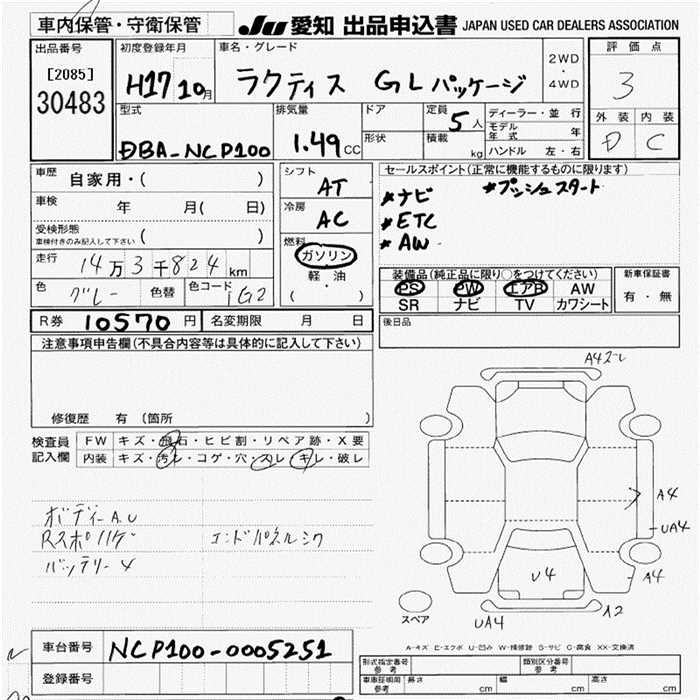 車内保管・守衛保管 JU 愛知 出品申込書 JAPAN USED CAR DEALERS ASSOCIATION
出品番号 初度登録年月 車名・グレード 2WD・4WD 評価点
[2085] H17 10月 ラクティス GLパッケージ 3
30483
型式 排気量 ドア 定員 5人 ディーラー・並行 外装 内装
DBA-NCP100 1.49CC 形状 積載 kg モデル年式 年 D C
ハンドル 左・右
車歴 自家用・( ) シフト AT セールスポイント(正常に機能するものに限ります)
車検 年 月( 日) 冷房 AC *ナビ *プッシュスタート
*ETC
受検形態 車検付きのみ記入して下さい ( ) 燃料 ガソリン *AW
走行 14万3千824km 軽・油 装備品(純正品に限り○をつけてください) 新車保証書
色 グレー 色替 色コード 1G2 ( ) PS PW エアB AW 有・無
SR ナビ TV カワシート
R券 10570円 名変期限 月 日 後日品
注意事項申告欄(不具合内容等は具体的に記入して下さい)
修復歴 有 (箇所 )
検査員記入欄 FW キズ・飛石・ヒビ割・リペア跡・X要
内装 キズ・汚レ・コゲ・穴・スレ・キレ・破レ
ボディーA.U
Rスポハゲ エンドパネルシワ
バッテリー4
A4
UA4
A4
U4
A2
UA4
スペア
A-キズ E-エクボ U-凹み W-補修跡 S-サビ C-腐食 XX-交換済
車台番号 NCP100-0005251
登録番号
型式指定番号 参考 類別区分番号 参考
車庫証明用 参考 長さ cm 幅 cm 高さ cm